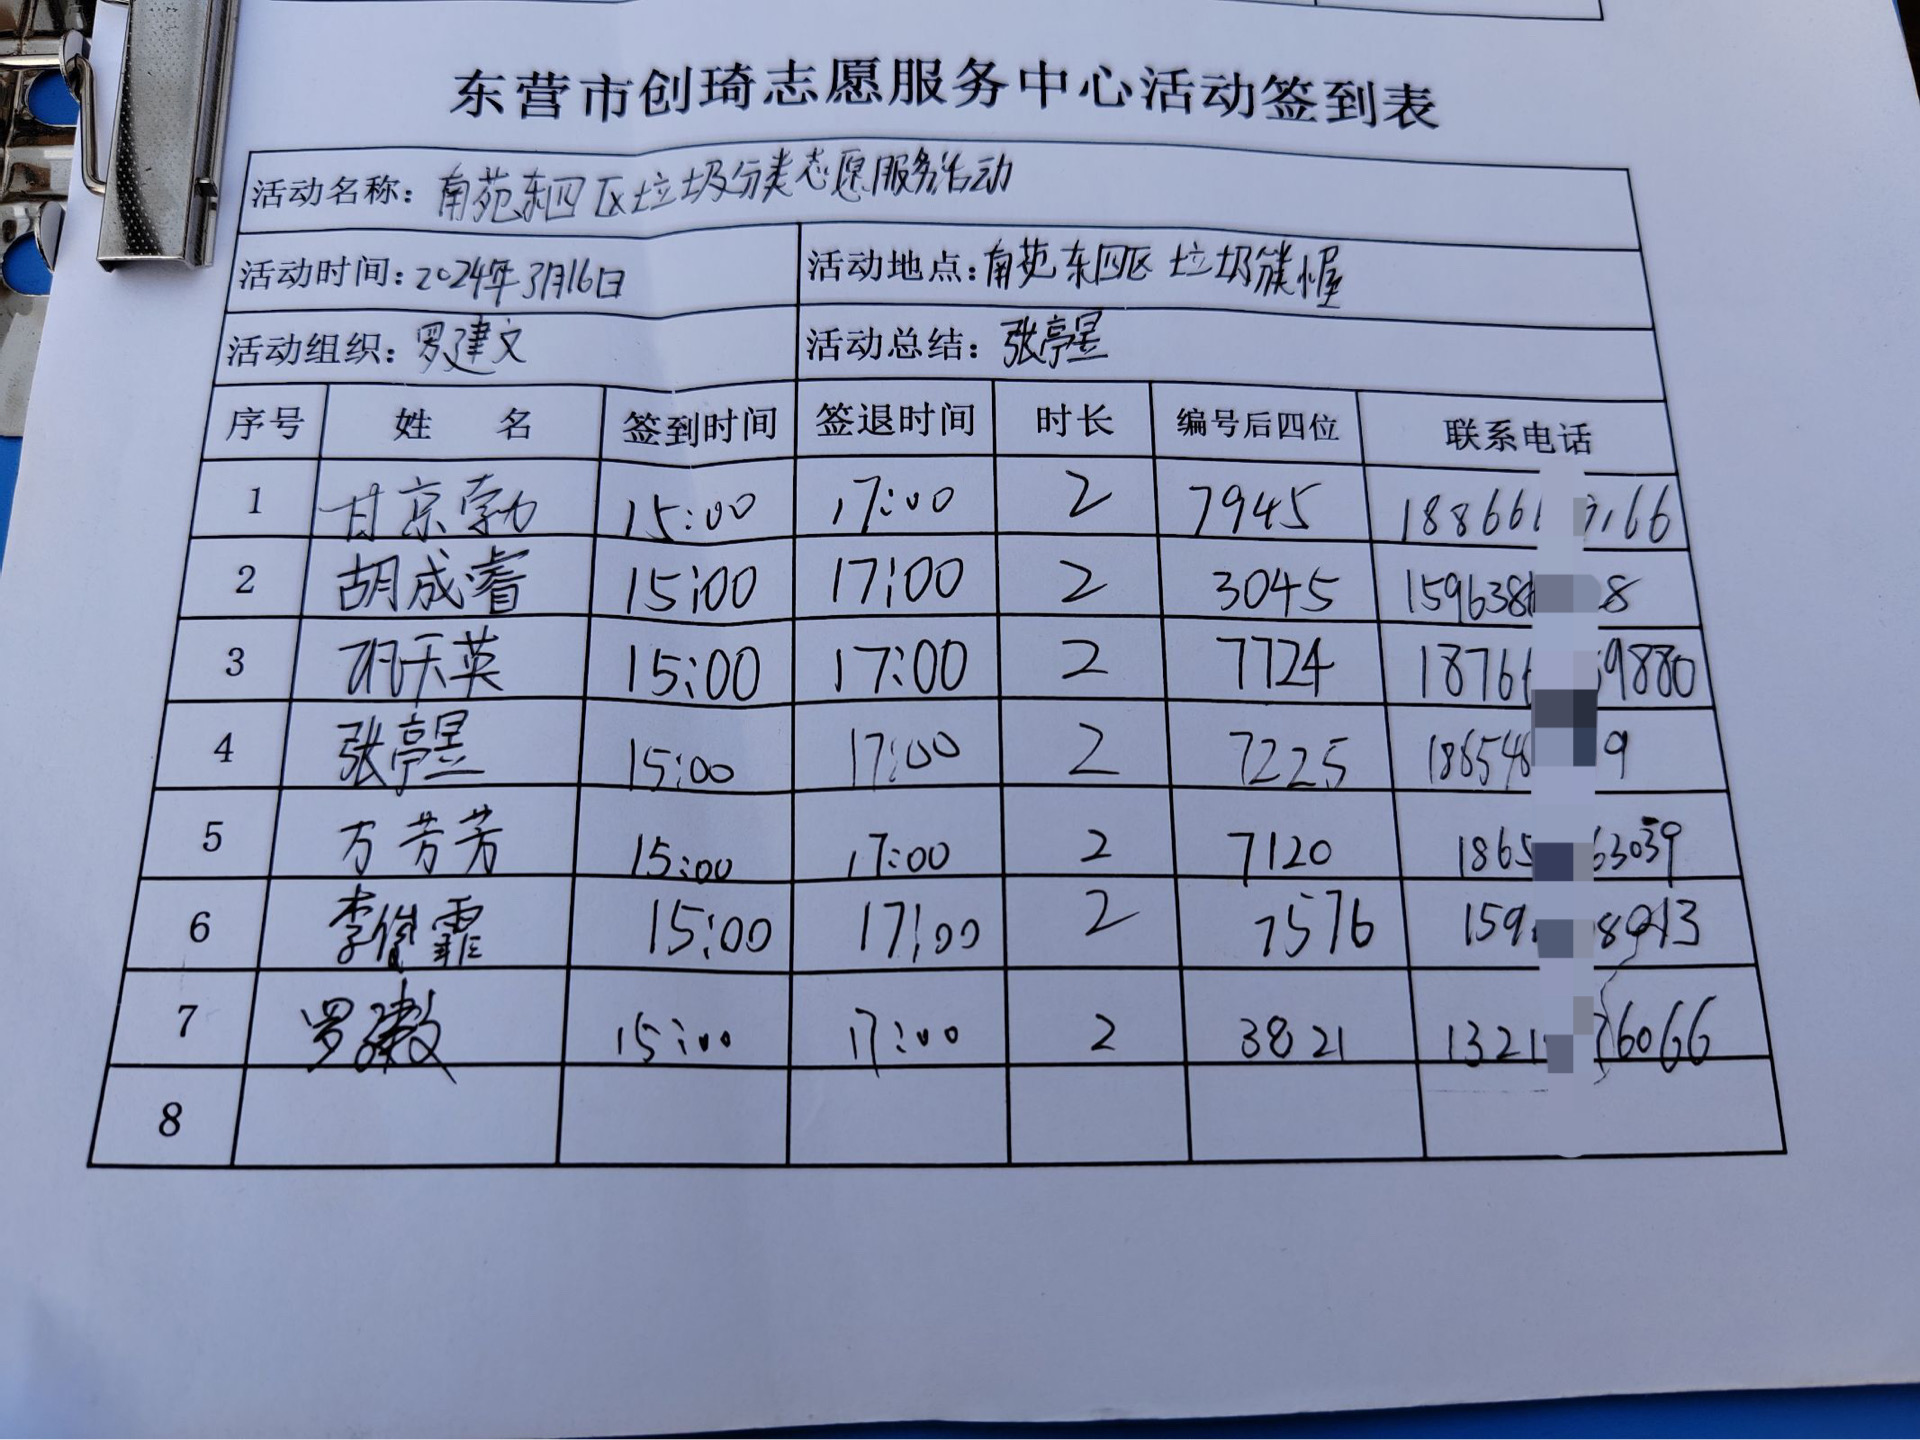 东营市创琦志愿服务中心活动签到表
活动名称：南苑东四区垃圾分类志愿服务活动
活动时间：2024年3月16日 活动地点：南苑东四区垃圾分类小屋
活动组织：罗建文 活动总结：张亭昱
序号 姓名 签到时间 签退时间 时长 编号后四位 联系电话
1 甘京勃 15:00 17:00 2 7945 18866 166
2 胡成睿 15:00 17:00 2 3045 159638 8
3 天英 15:00 17:00 2 7724 1876 9880
4 张亭昱 15:00 17:00 2 7225 186548 9
5 方芳芳 15:00 17:00 2 7120 1865 63039
6 李俊霏 15:00 17:00 2 7576 159 8913
7 罗建文 15:00 17:00 2 3821 1321 6066
8